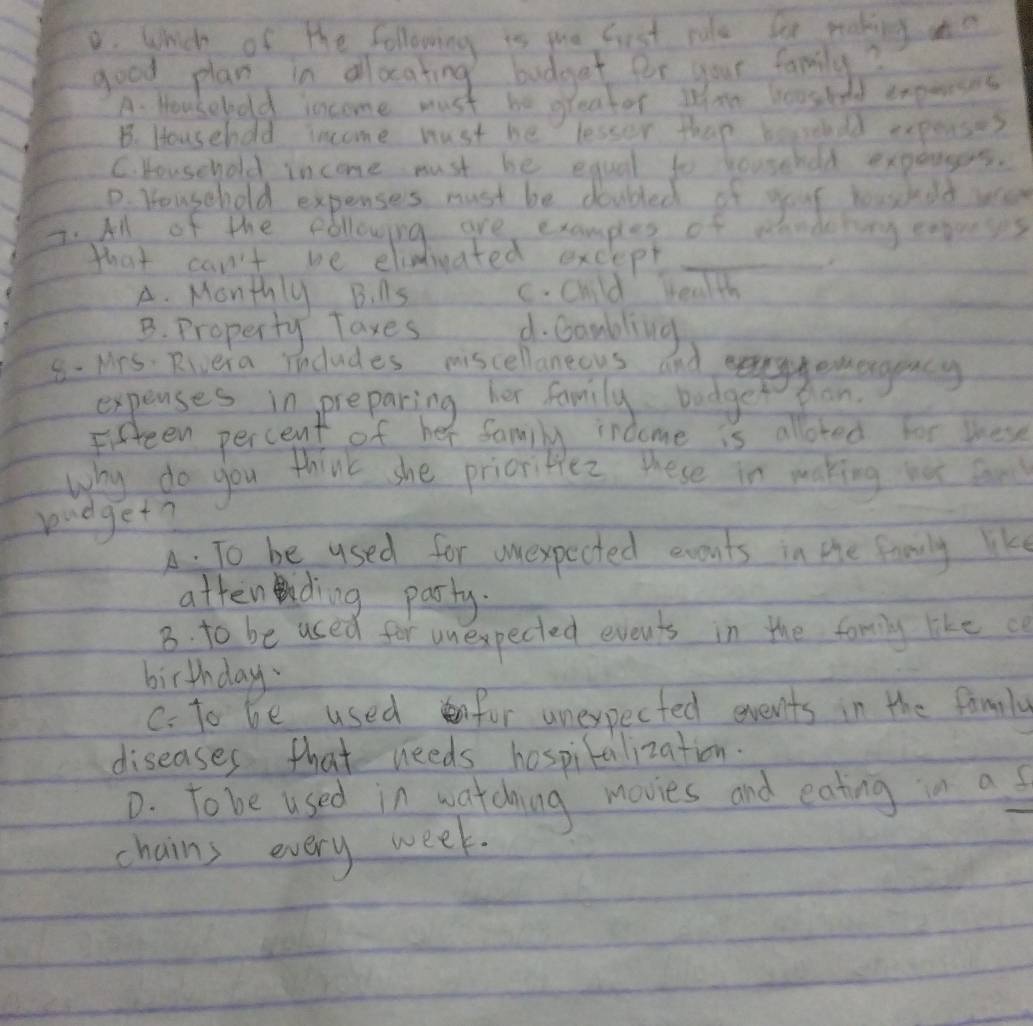 0. Which of the following is the first rule for making a
good plan in allocating budget for your family?
A. Household income must be greater than household expenses
B. Household income must be lesser than household expenses
C. Household income must be equal to household expenses.
D. Household expenses must be doubled of your household
7. All of the following are examples of expenses
that can't be eliminated except ________.
A. Monthly Bills C. Child Health
B. Property Taxes d. Gambling
8. Mrs. Rivera includes miscellaneous and emergency
expenses in preparing her family budget plan.
Fifteen percent of her family income is alloted for these
Why do you think she prioritiez these in making her
budget?
A. To be used for unexpected events in the family like
attending party.
B. to be used for unexpected events in the family like ce
birthday.
C. To be used for unexpected events in the family
diseases that needs hospitalization.
D. To be used in watching movies and eating in a f
chains every week.